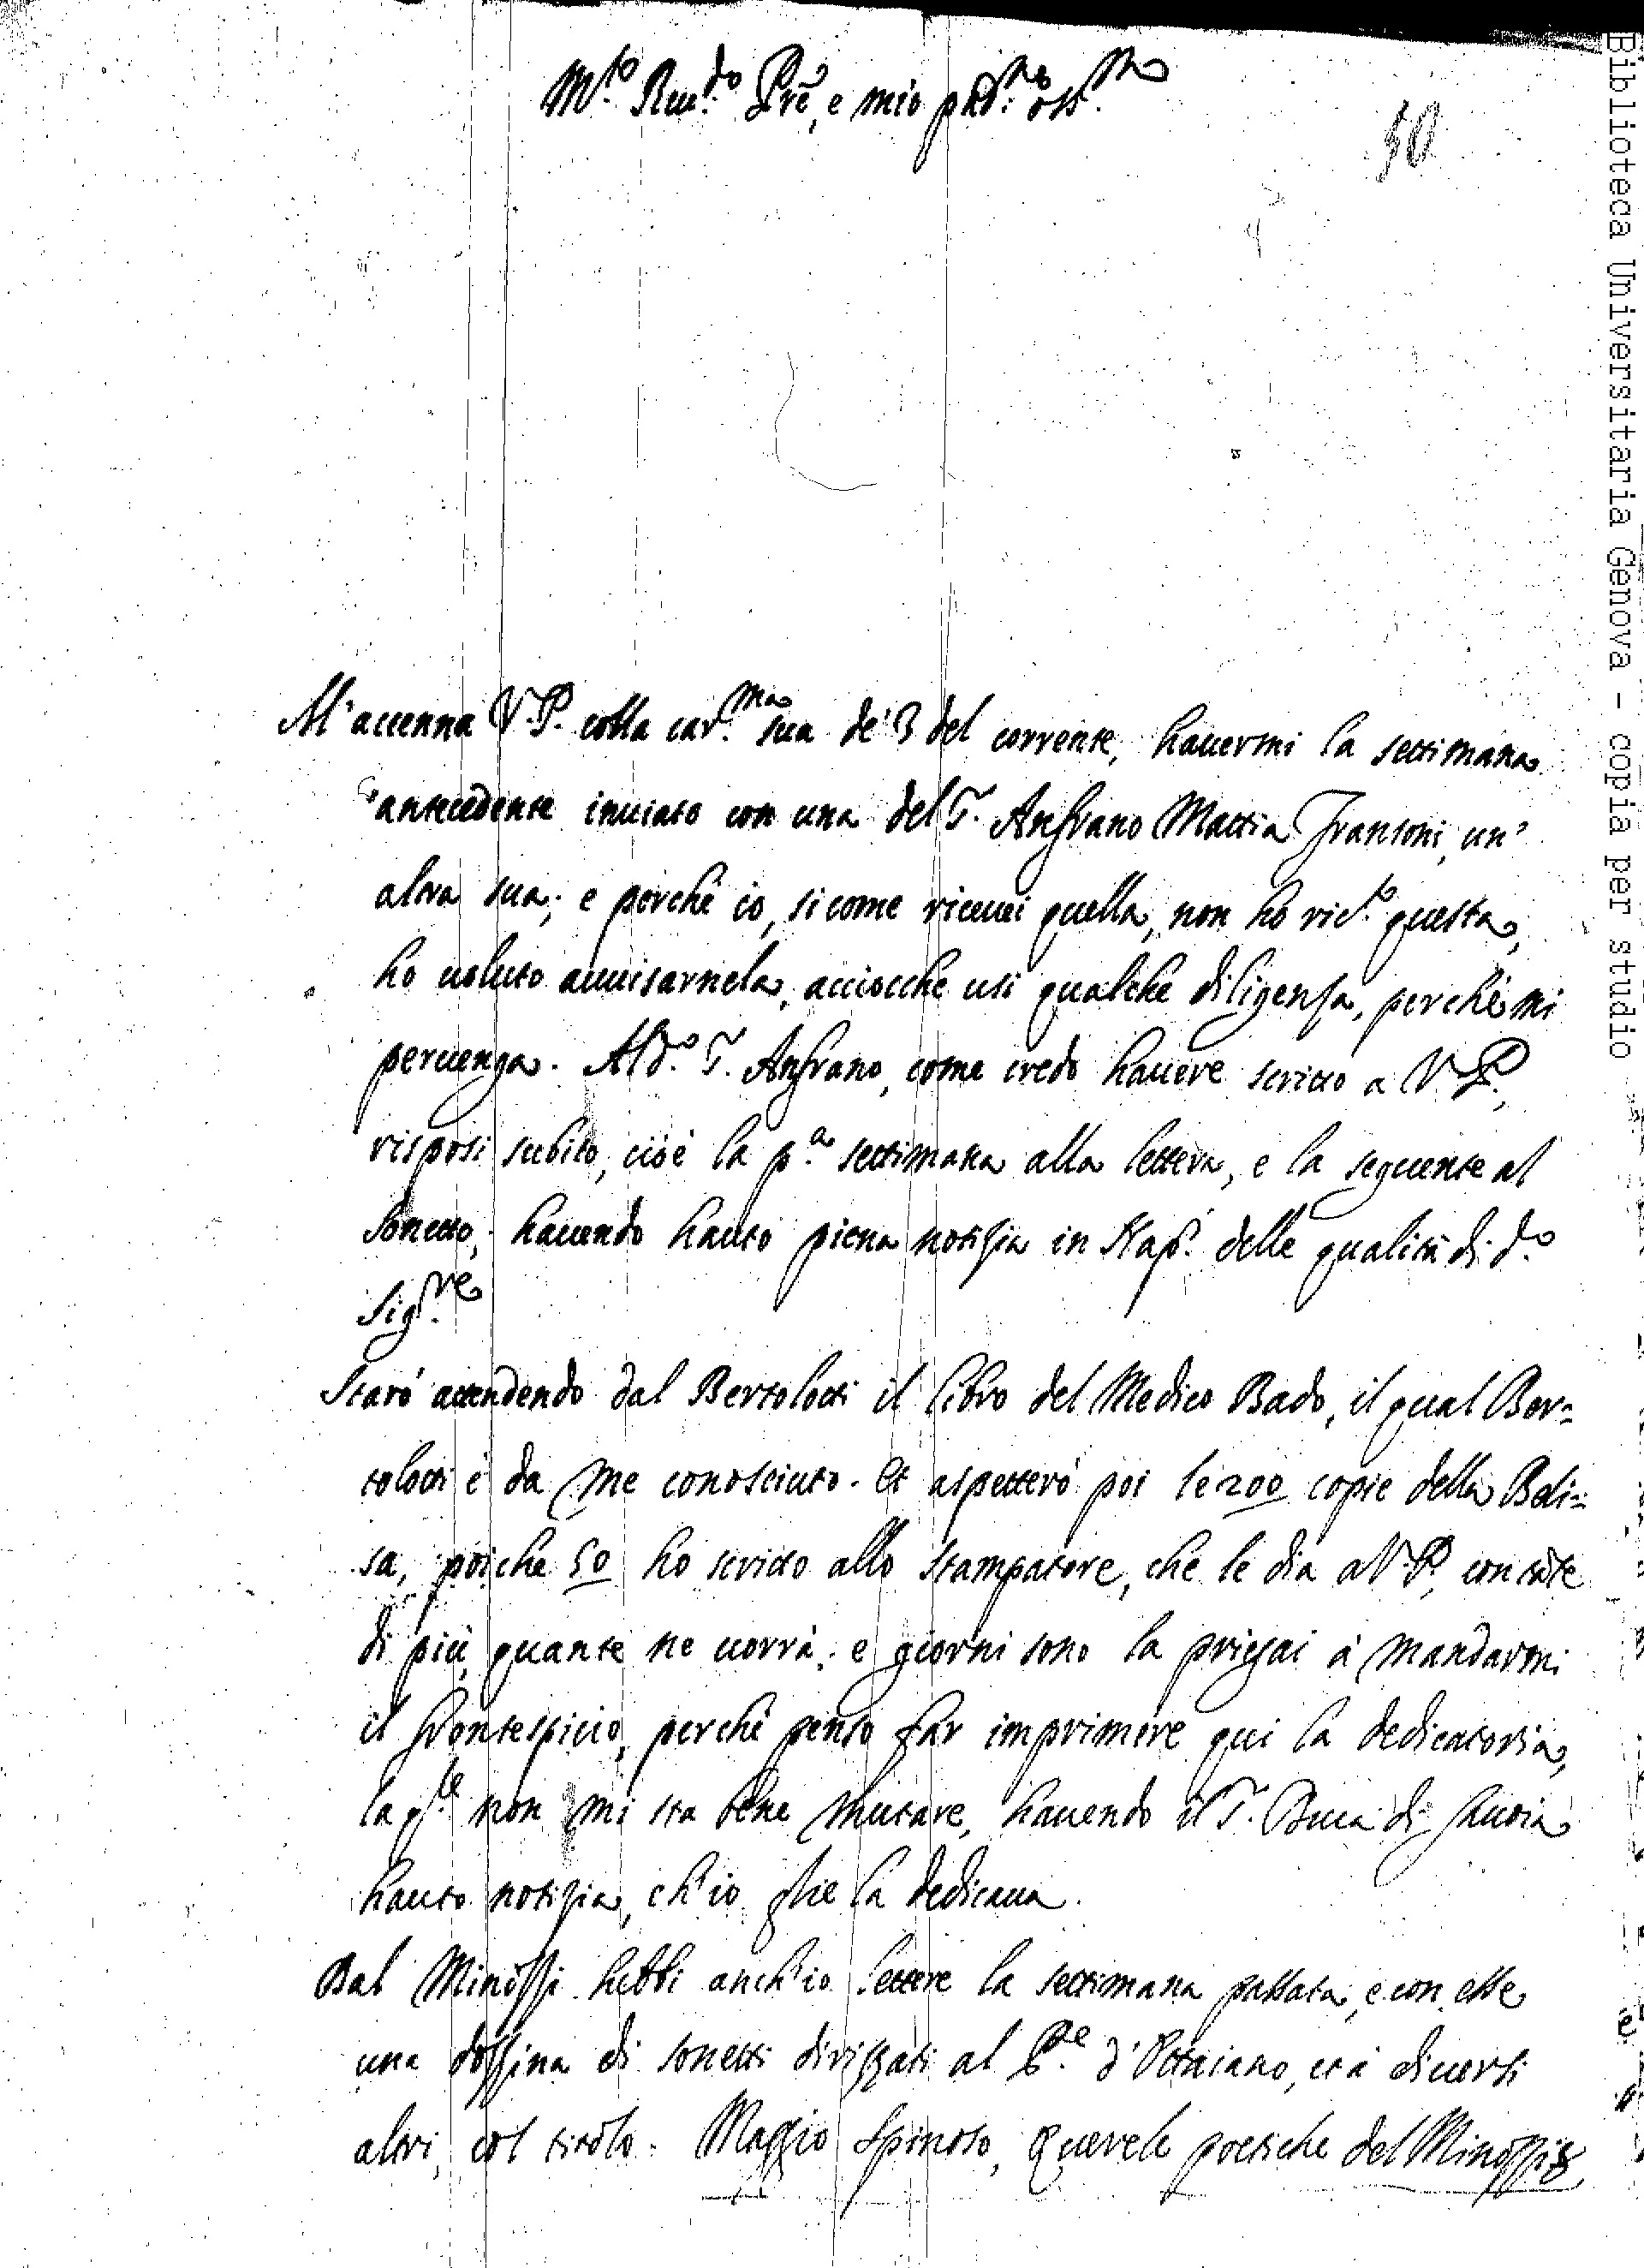 M.to Reu.do Pre, e mio pad.ne oss.mo
50
M'accenna V.P. colla car.ma sua de' 3 del corrente, hauermi la settimana
antecedente inuiato con una del S. Ansrano Mattia Fransoni, un'
altra sua; e perche io, si come riceuei quella, non ho ric.to questa,
ho uoluto auuisarnela, acciocche usi qualche diligenza, perche mi
peruenga. Al d.o S. Ansrano, come credo hauere scritto a V.P.,
risposi subito, cioè la p.a settimana alla lettera, e la seguente al
Sonetto, hauendo hauto piena notizia in Nap. delle qualità di d.o
Sig.re
Starò attendendo dal Bertolotti il libro del Medico Bado, il qual Ber=
tolotti è da me conosciuto. Et aspetterò poi le 200 copie della Beli=
sa, poiche 50 ho scritto allo stampatore, che le dia a V.P. con tãte
di più, quante ne uorrà; e giorni sono la pregai à mandarmi
il frontespicio, perche penso far imprimere qui la dedicatoria,
la q.le non mi sta bene mutare, hauendo il S. Duca di
hauto notizia, ch'io glie la dedicaua.
Dal Minozzi hebbi anch'io lettere la settimana passata, e con esse
una dozzina di sonetti dirizzati al P.e d'Ottaiano, et à diuersi
altri, col titolo. Maggio Spinoso, Querele poetiche del Minozzi,
Biblioteca Universitaria Genova - copia per studio